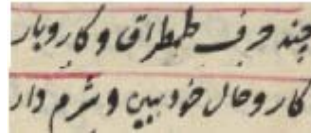 چند حرف طمطراق و کاروبار
کار و حال خود ببین و شرم دار